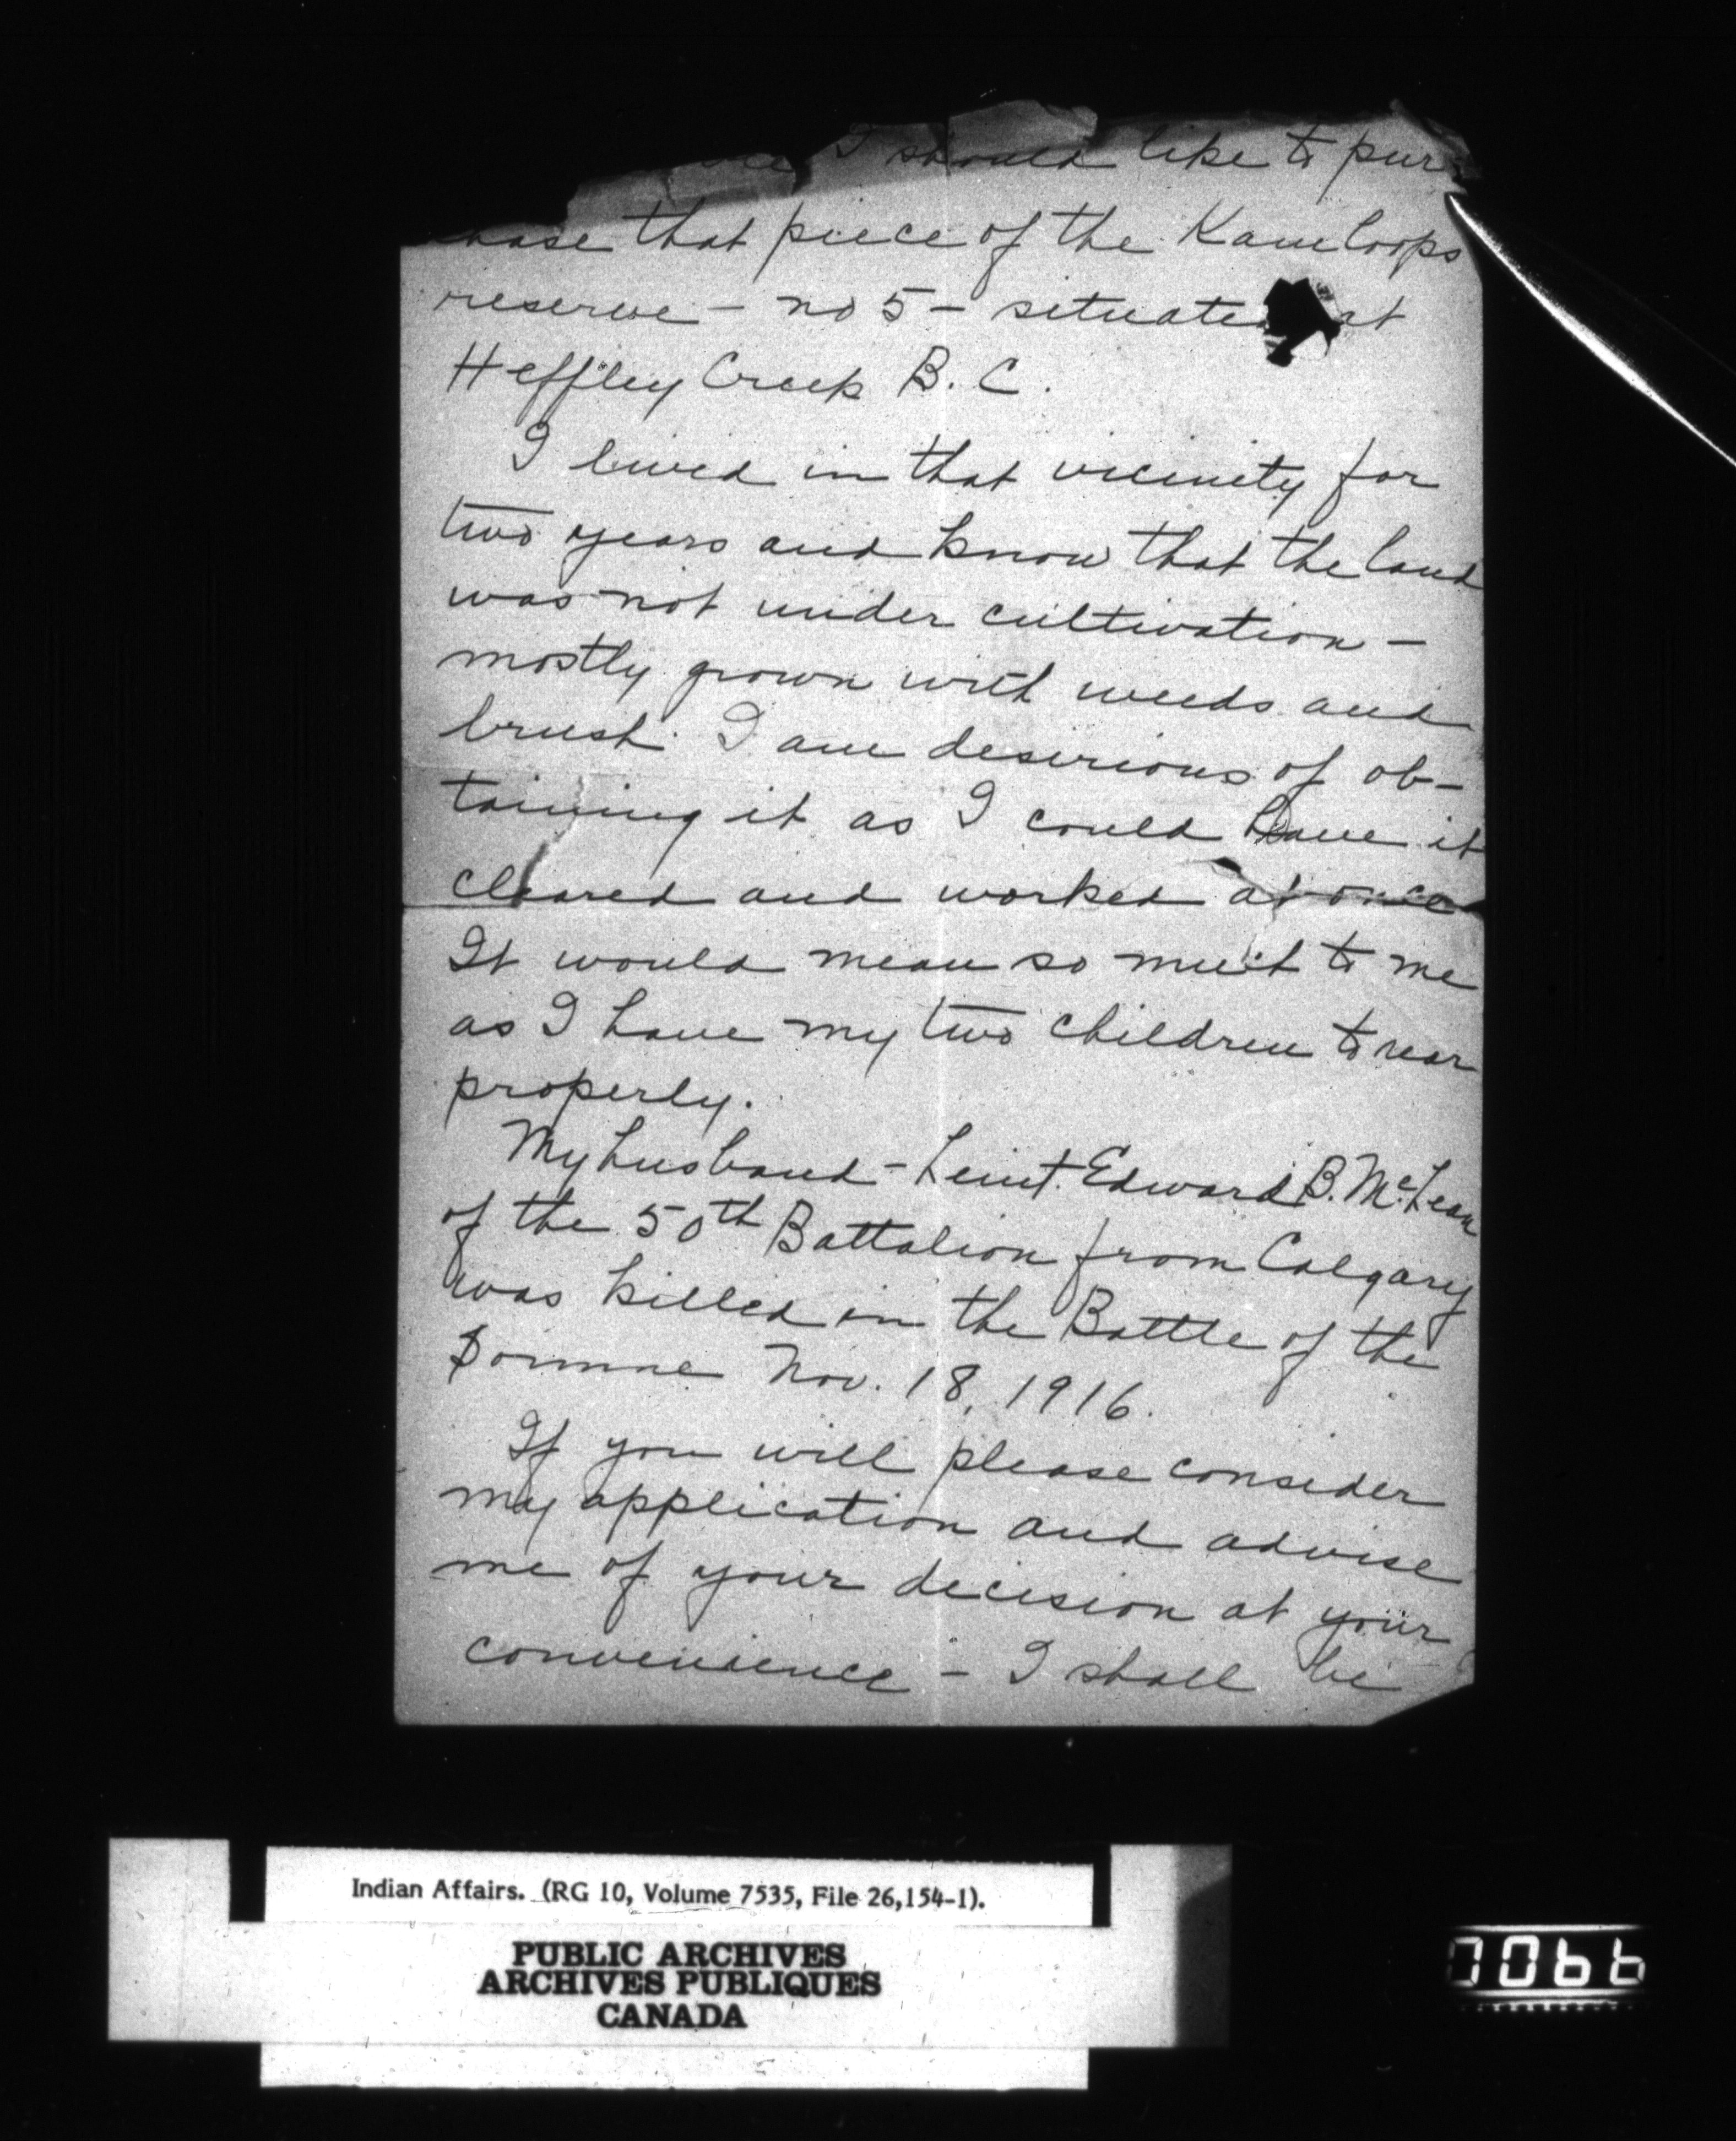 I should like to pur-
chase that piece of the Kamloops
reserve - no 5 - situated at
Heffley Creek B. C.
I lived in that vicinity for
two years and know that the land
was not under cultivation -
mostly grown with weeds and
brush. I am desirious of ob-
taining it as I could have it
cleared and worked at once
It would mean so much to me
as I have my two children to rear
properly.
My husband - Leiut. Edward B. McLean
of the 50th Battalion from Calgary
was killed in the Battle of the
Somme Nov. 18, 1916.
If you will please consider
my application and advise
me of your decision at your
convenience - I shall be
Indian Affairs. (RG 10, Volume 7535, File 26,154-1).
PUBLIC ARCHIVES
ARCHIVES PUBLIQUES
CANADA
0066